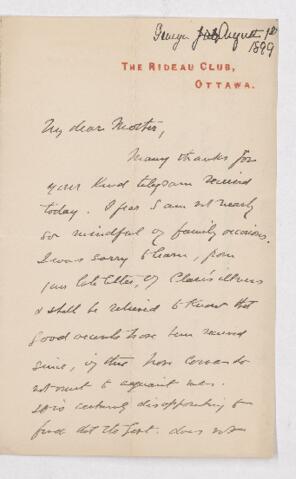 George July August 1st
1899
THE RIDEAU CLUB,
OTTAWA.
My dear Mother,
Many thanks for
your kind telegram received
today. I fear I am not nearly
so mindful of family occasions.
I was sorry to learn, from
your late letter, of illness
& shall be relieved to know that
good accounts have been received
since,
not
It is certainly disappointing to
find that the does not